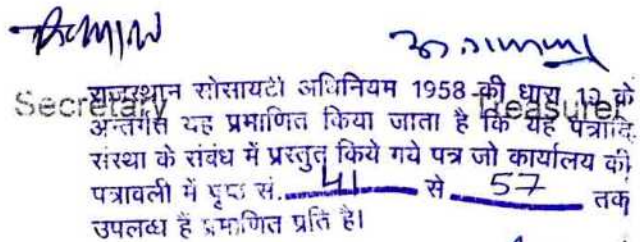 Secretary Treasurer
राजस्थान सोसायटी अधिनियम 1958 की धारा 19 के
अन्तर्गत यह प्रमाणित किया जाता है कि यह पत्रादि
संस्था के संबंध में प्रस्तुत किये गये पत्र जो कार्यालय की
पत्रावली में पृष्ठ सं. 41 से 57 तक
उपलब्ध हैं प्रमाणित प्रति है।